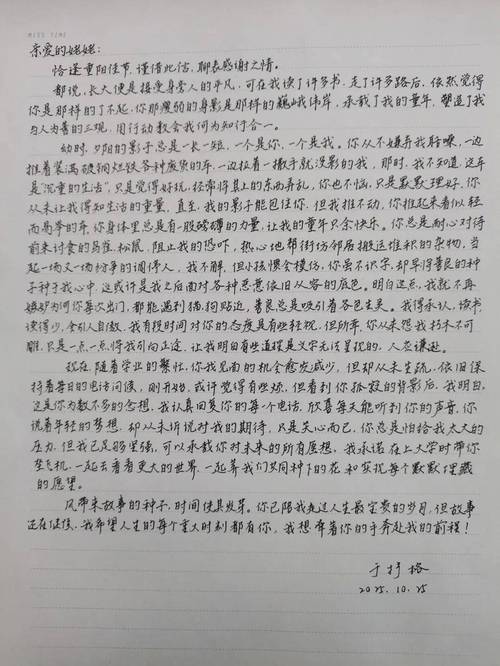 MISS TIME
亲爱的姥姥:
恰逢重阳佳节,谨借此信,聊表感谢之情。
都说,长大便是接受身旁人的平凡,可在我读了许多书,走了许多路后,依然觉得
你是那样的了不起,你那瘦弱的身影是那样的巍峨伟岸,承载了我的童年,塑造了我
与人为善的三观,用行动教会我何为知行合一。
幼时,夕阳的影子总是一长一短,一个是你,一个是我。你从不嫌弃我聒噪,一边
推着装满破铜烂铁各种废货的车,一边拉着一撒手就没影的我,那时,我不知道,这车
是“沉重的生活”,只是觉得好玩,经常将其上的东西弄乱,你也不恼,只是默默理好,你
从未让我得知生活的重量,直至,我的影子能包住你,但我推不动,你推起来看似轻
而易举的车,你身体里总是有一股磅礴的力量,让我的童年只余快乐。你总是耐心对待
前来讨食的鸟雀、松鼠,阻止我的恐吓,热心地帮街坊邻居搬运堆积的杂物,当
起一场又一场纷争的调停人,我不解,但小孩惯会模仿,你虽不识字,却早将善良的种
子种于我心中,这或许是我之后面对各种恶意依旧从容的底色。明白这点,我就不再
嫉妒为何你每次出门,都能遇到猫、狗贴近,善良总是吸引着各色生灵。我得承认,读书
读得少,会引人自傲,我有段时间对你的态度是有些轻视,但所幸,你从未怨我朽木不可
雕,只是一点一点将我引向正途,让我明白有些道理是文字无法呈现的,人应谦逊。
现在,随着学业的繁忙,你我见面的机会愈发减少,但却从未生疏,依旧保
持着每日的电话问候,刚开始,或许觉得有些烦,但看到你孤寂的背影后,我明白,
这是你为数不多的念想,我认真回复你的每个电话,欣喜每天能听到你的声音,你
说着年轻的梦想,却从未诉说对我的期待,只是关心而已,你总是怕给我太大的
压力,但我已足够坚强,可以承载你对未来的所有愿想,我承诺在上大学时带你
坐飞机,一起去看看更大的世界,一起养我们共同种下的花和实现每个默默埋藏
的愿望。
风带来故事的种子,时间使其发芽。你已陪我走过人生最宝贵的岁月,但故事
还在继续,我希望人生的每个重大时刻都有你,我想牵着你的手奔赴我的前程!
于抒格
2025.10.25